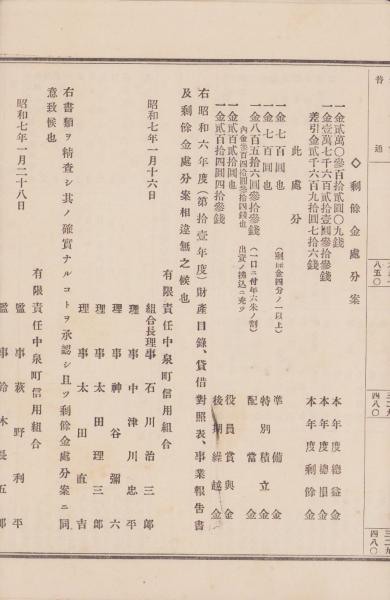 普通
八五〇
四八〇
四八〇
◇剰餘金處分案
一金貳萬〇參百拾貳圓〇九錢 本年度總益金
一金壹萬七千六百貳拾壹圓參拾參錢 本年度總損金
差引金貳千六百九拾圓七拾六錢 本年度剰餘金
此處分
一金七百圓也 (剰餘金四分ノ一以上) 準備金
一金七百圓也 特別積立金
一金八百五拾六圓參拾參錢 (一口ニ付年六朱ノ割) 配當金
内金參百四拾參圓參拾四錢也 出資ノ拂込ニ充ツ
一金貳百貳拾圓也 役員賞與金
一金貳百拾四圓四拾參錢 後期繰越金
右昭和六年度(第拾壹年度)財產目錄、貸借對照表、事業報告書
及剰餘金處分案相違無之候也
昭和七年一月十六日
有限責任中泉町信用組合
組合長理事 石川治三郎
理事 中津川忠平
理事 神谷彌六
理事 太田理三郎
理事 太田直吉
右書類ヲ精査シ其ノ確實ナルコトヲ承認シ且ツ剰餘金處分案ニ同
意致候也
昭和七年一月二十八日
有限責任中泉町信用組合
監事 萩野利平
監事 鈴木長五郎